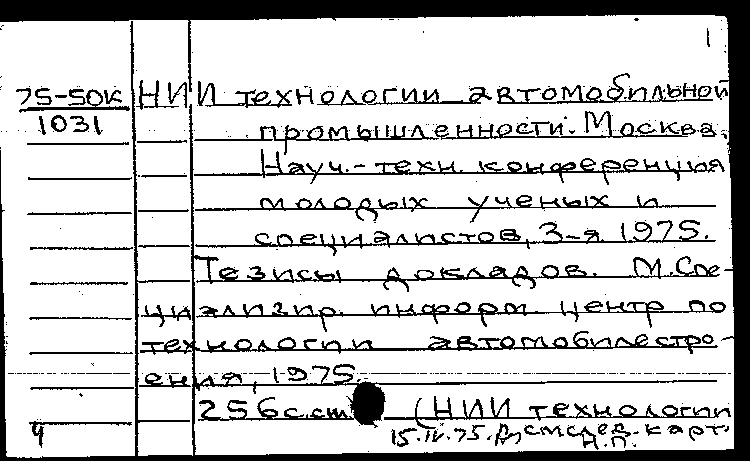 1
75-50К НИИ технологии автомобильной
1031 промышленности. Москва.
Науч.-техн. конференция
молодых ученых и
специалистов, 3-я 1975.
Тезисы докладов. М. Спе-
циализир. информ. центр по
технологии автомобилестро-
ения, 1975.
256 с. (НИИ технологии
ч 15.IV.75. см след. карт.
Н.П.